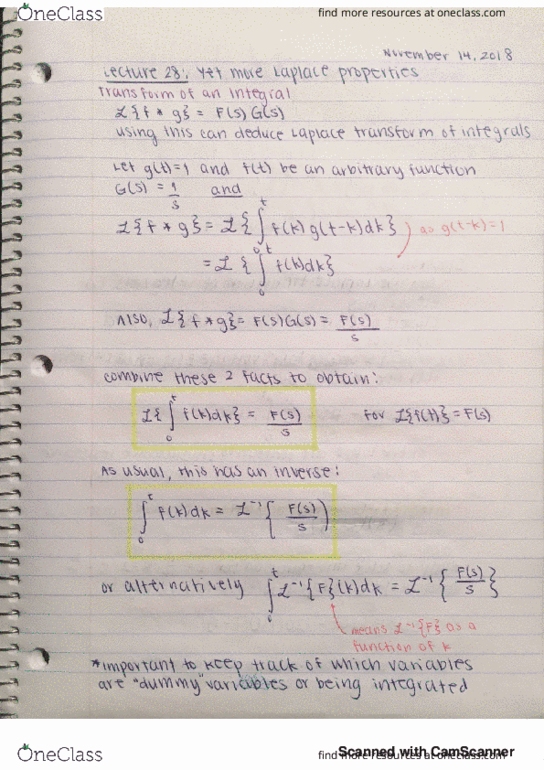 OneClass
find more resources at oneclass.com
November 14, 2018
Lecture 28: Yet more Laplace properties
Transform of an Integral
ℒ{f * g} = F(s)G(s)
using this can deduce Laplace transform of integrals
Let g(t)=1 and f(t) be an arbitrary function
G(s) = 1/s and
ℒ{f * g} = ℒ{∫₀ᵗ f(k) g(t-k)dk} as g(t-k)=1
= ℒ{∫₀ᵗ f(k)dk}
Also, ℒ{f * g} = F(s)G(s) = F(s)/s
combine these 2 facts to obtain:
ℒ{∫₀ᵗ f(k)dk} = F(s)/s for ℒ{f(t)} = F(s)
As usual, this has an inverse:
∫₀ᵗ f(k)dk = ℒ⁻¹{F(s)/s}
or alternatively ∫₀ᵗ ℒ⁻¹{F}(k)dk = ℒ⁻¹{F(s)/s}
means ℒ⁻¹{F} as a
function of k
*important to keep track of which variables
are "dummy" variables or being integrated
OneClass
find more resources at oneclass.com
Scanned with CamScanner